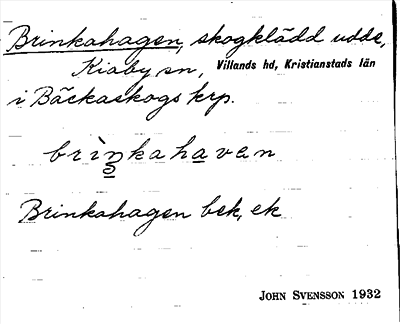 Brinkahagen, skogklädd udde,
Kiaby sn, Villands hd, Kristianstads län
i Bäckaskogs krp.
brìŋkahavæn
Brinkahagen bek, ek
JOHN SVENSSON 1932